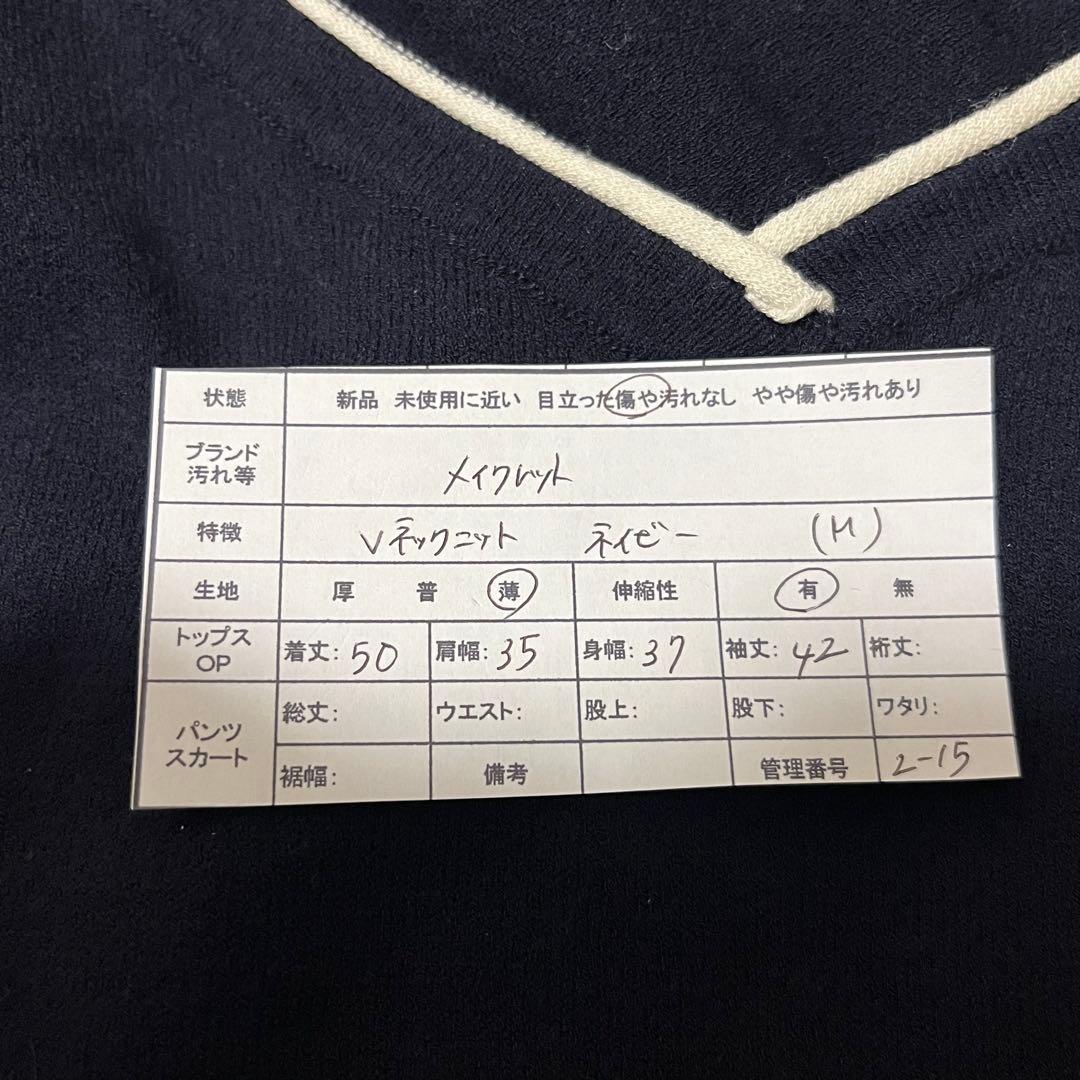 状態 新品 未使用に近い 目立った傷や汚れなし やや傷や汚れあり
ブランド
汚れ等
メイクレット
特徴 Vネックニット ネイビー (M)
生地 厚 普 薄 伸縮性 有 無
トップス
OP
着丈: 50 肩幅: 35 身幅: 37 袖丈: 42 裄丈:
パンツ
スカート
総丈: ウエスト: 股上: 股下: ワタリ:
裾幅: 備考 管理番号 2-15